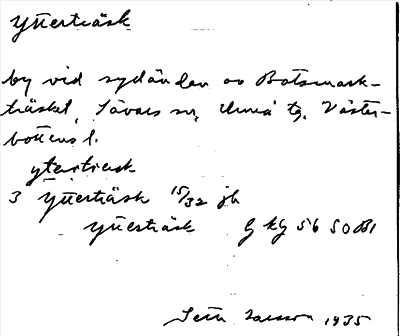 Ytterträsk
by vid sydändan av Botsmark-
träsket, Sävars sn, Umeå tg, Väster-
bottens l.
yttertresk
3 Ytterträsk 15/32 jb
Ytterträsk G kg 56 SO B1
Seth Larsson 1935